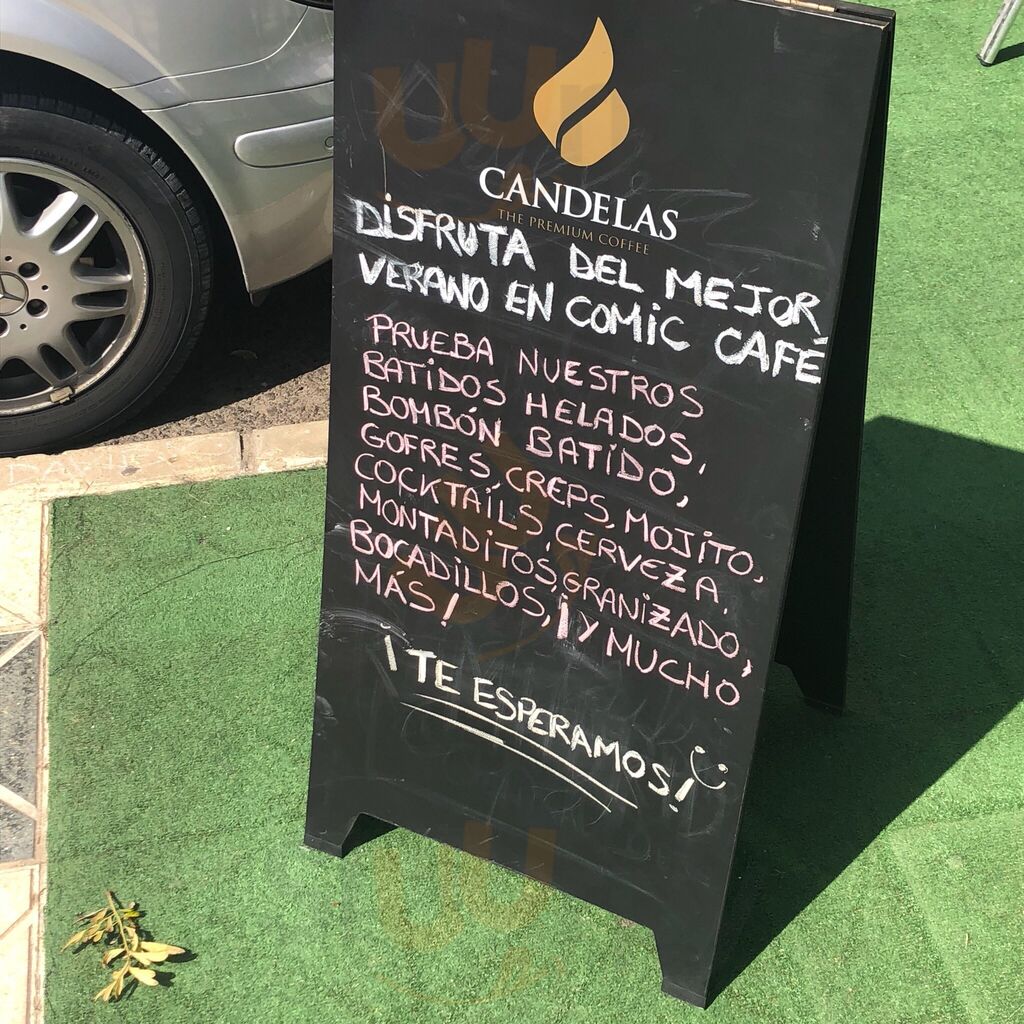 CANDELAS
THE PREMIUM COFFEE
DISFRUTA DEL MEJOR
VERANO EN COMIC CAFÉ
PRUEBA NUESTROS
BATIDOS HELADOS,
BOMBÓN BATIDO,
GOFRES, CREPS, MOJITO,
COCKTAILS, CERVEZA,
MONTADITOS, GRANIZADO,
BOCADILLOS, ¡Y MUCHO
MÁS!
¡TE ESPERAMOS!